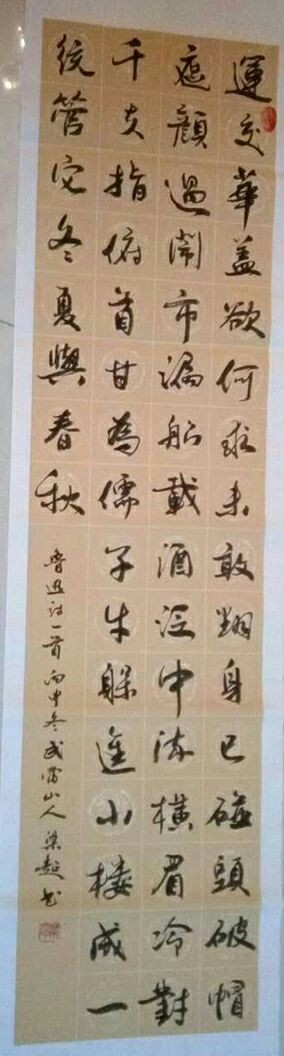 運交華蓋欲何求未敢翻身已碰頭破帽
遮顏過鬧市漏船載酒泛中流橫眉冷對
千夫指俯首甘為儒子牛躲進小樓成一
統管它冬夏與春秋
魯迅詩一首丙申冬武當山人梁超書